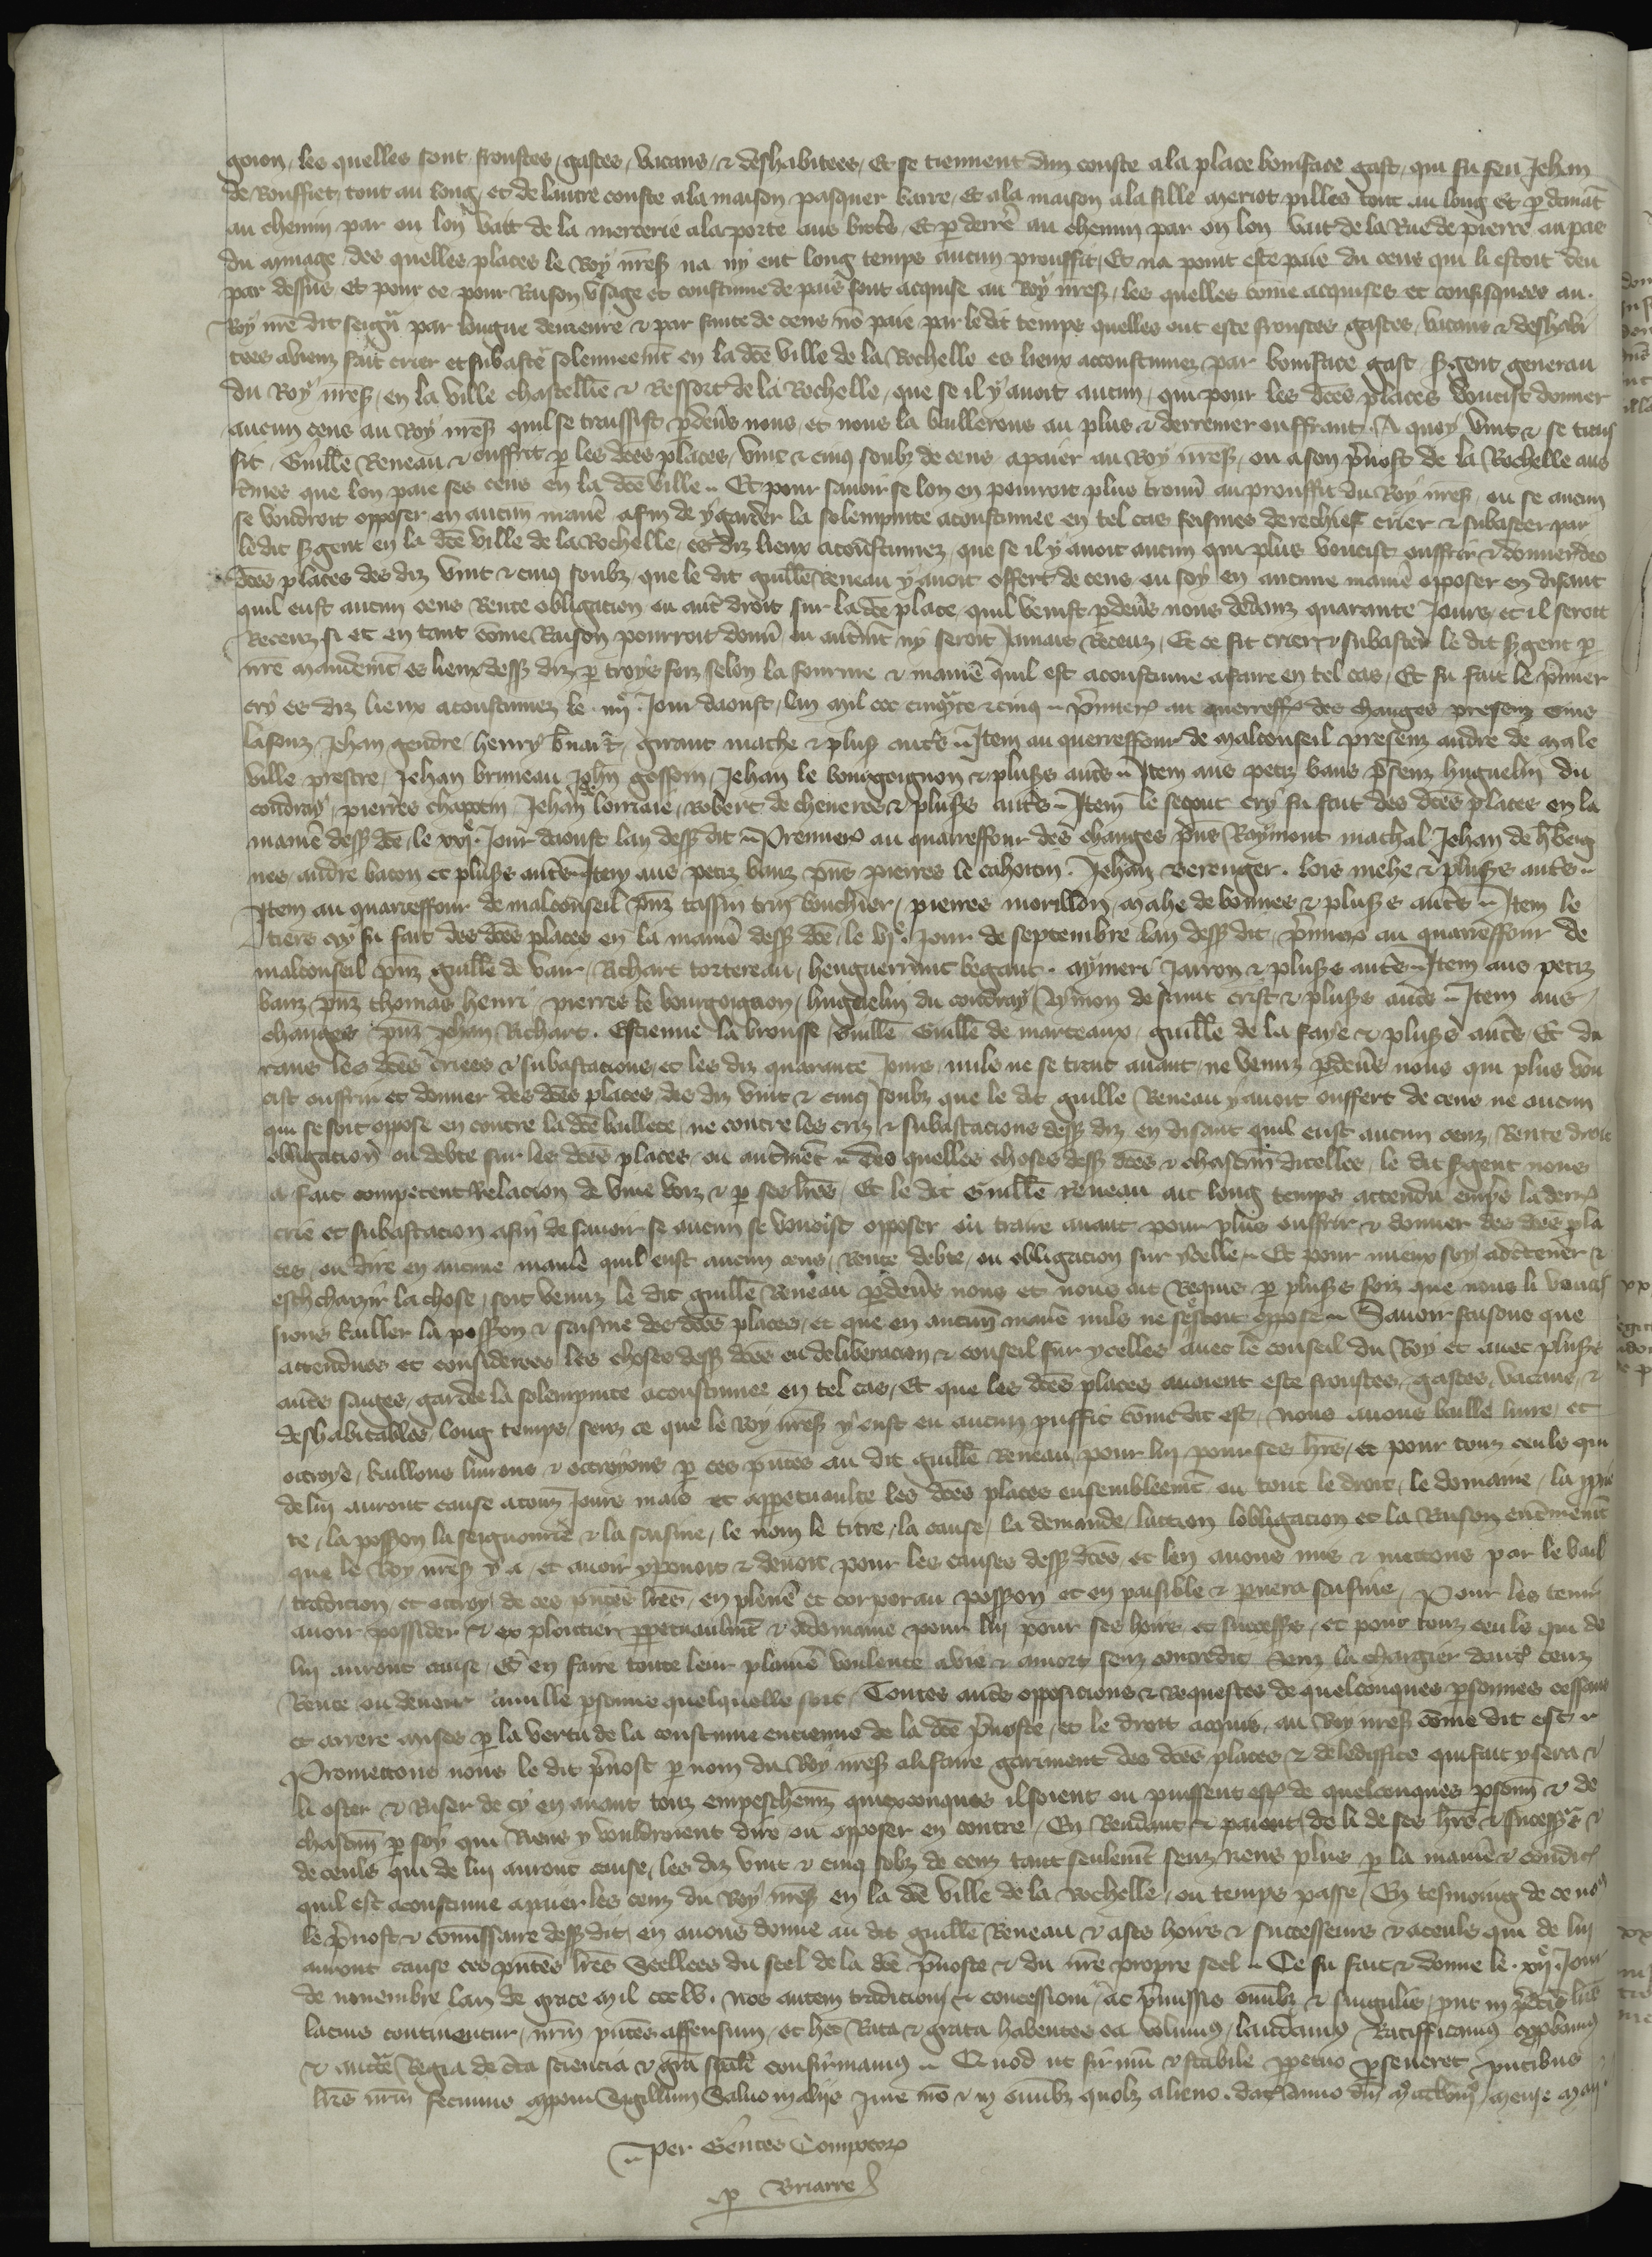 goion, les quelles sont froustes, gastes, vacans, & deshabitees, Et se tiennent dun couste a la place boniface gast, qui fu feu Jehan
de Rouffiet, tout au long, et de lautre couste a la maison pasquer barre, et a la maison a la fille meriot pilles tout au long et p devant
au chemin par ou lon vait de la mercerie a la porte aus Et p derre au chemin par ou lon vait de la Rue de pierre au pas
du minage, des quelles places le Roy nres na ny ent long temps aucun prouffit, Et na point este paie du cens qui li estoit deu
par dessus et pour ce pour Raison usage et coustume de pais sont acquise au Roy nres, les quelles come acquises et confisquees au
Roy nre dit seign par longue demeure & par faute de cens no paie par le dit temps quelles ont este froustes, gastes, vacans & deshabi
tees aviens fait crier et subaster solennement en la dce ville de la Rochelle es lieux acoustumez par boniface gast sgent generau
du Roy nres, en la ville chastellie & Ressort de la Rochelle, que se il y avoit aucun, qui pour les dces places voucist donner
aucun cens au Roy nres quil se traissist pdevs nous, et nous la baillerons au plus & derremer ouffrant. A quoy vint & se trais
sit, Guille Reneau & ouffrit p les dces places, vint & cinq soulz de cens apaier au Roy nres, ou a son pvost de la Rochelle aus
tmes que lon paie ses cens en la dce ville Et pour savoir se lon en pourroit plus trouv au prouffit du Roy nres, ou se aucun
se voudroit opposer en aucun manie afin de y garder la solempnite acoustumee en tel cas feismes derechief crier & subaster par
le dit sgent en la dce ville de la Rochelle, es diz lieux acoustumez, que se il y avoit aucun qui plus voucist ouffrir & donner des
dces places des diz vint & cinq soulz, que le dit guille Reneau y avoit offert de cens, ou soy en aucune manie opposer en disant
quil eust aucun cens Rente obligacion ou aut droit sur la dce place, quil venist pdevs nous dedanz quarante Jours, et il seroit
Receuz si et en tant come Raison pourroit donn, ou autmt ny seroit Jamais Receuz, Et ce fit crier & subaster le dit sgent p
nre mandemt es lieux dess diz p troys foiz selon la fourme & manie quil est acoustume afaire en tel cas, Et fu fait le pmier
cry es diz lieux acoustumez le iiije Jour daoust, lan mil ccc cinqte & cinq pmiere au querreffo des changes presenz
lasonz, Jehan gendre, henry bnart, giraut mache & plus auts Item au querreffour de malconseil presenz andre de male
ville prestre, Jehan bruneau, John gossom, Jehan le bourgoignon & pluss auts Item aus petiz bans psenz huguelin du
coudray, pierres chapotin, Jehan de lorraie, Robert de cheveres & pluss auts Item le segont cry fu fait des dces places en la
manie dess dce, le xxje Jour daoust lan dess dit Premiere au quarreffour des changes pns Raymont machal Jehan de
nes, andre bacon et pluss auts Item aus petiz banz pns pierres le cahorin, Jehan Berenger, lois mehe & pluss auts
Item au quarreffour de malconseil pnz tassin trin bouchier, pierres morillon, mahe de bonnes & pluss auts Item le
tiers cry fu fait des dces places en la manie dess dce, le vje Jour de septembre lan dess dit, pmiere au quarreffour de
malconseil pnz guille de vair, Richart tortereau, henguerrant begaut, aymeri Jarron & pluss auts Item aus petiz
banz pnz thomas henri, pierres le bourgoignon, huguelin du coudray, Aymon de saint crist & pluss auts Item aus
changes pnz Jehan Richart, Estienne la brousse, Guille Guille de marceaux, guille de la faye & pluss auts, Et du
rans les dces criees & subastacions, et les diz quarante Jours, nuls ne se trait avant, ne venuz pdevs nous qui plus vou
cist ouffrir et donner des dces places, des diz vint & cinq soulz que le dit guille Reneau y avoit ouffert de cens ne aucun
qui se soit oppose en contre la dce baillete, ne contre les criz & subastacions dess diz en disant quil eust aucun cenz, Rente droit
obligacion ou debte sur les dces places, ou autrment Des quelles choses dess dces & chascune dicelles, le dit sgent nous
a fait competent Relacion de vive voiz & p ses lres, Et le dit Guille Reneau ait long temps attendu empres la dere
crie et subastacion afin de savoir se aucun se vousist opposer ou traire avant pour plus ouffrir & donner des dces pla
ces, ou dire en aucune manie quil eust aucun cens, Rente debte, ou obligacion sur ycelle Et pour mieux soy acertener &
eschcharzir la chose, soit venuz le dit guille Reneau pdevs nous et nous ait Requis p pluss foiz que nous li voucis
sions bailler la posson & saisine des dces places, et que en aucun manie nuls ne sestoit oppose Savoir faisons que
attendues et considerees les choses dess dces eu deliberacion & conseil sur ycelles avec le conseil du Roy et avec pluss
auts sages, garde la solempnite acoustumee en tel cas, Et que les dces places avoient este froustes, gastes, vacans, &
deshabitables long temps, senz ce que le Roy nres y eust eu aucun puffit come dit est, nous avons baille livre, et
octroye, baillons livrons & octroyons p ces pntes au dit guille Reneau, pour lui pour ses hres, et pour touz ceuls qui
de lui auront cause a touz Jours mais et a ppetuaulte les dces places ensemblemt ou tout le droit, le domaine, la ppie
te, la posson la seignourie & la saisine, le nom le titre, la cause, la demande, laction lobligacion et la Raison entmeint
que le Roy nres y a, et avoir y povoit & devoit, pour les causes dess dces, et len avons mis & mettons par le bail
tradicion, et octroy de ces pntes lres, en plene et corporau posson et en paisible & pmera saisine, Pour les tenir
avoir possider & ex ploitier ppetuaulmt & a domaine pour lui pour ses hoirs et successs, et pour touz ceuls qui de
lui auront cause, Et en faire toute leur plaine voulente a vie & a mort senz contredit, senz la chargier daut cenz
Rente ou devoir a nulle psonne quelquelle soit, Toutes auts opposicions & Requestes de quelconques psonnes cessans
et arrere mises p la vertu de la coustume encienne de la dce pvoste, et le droit acquis au Roy nres come dit est
Promettons nous le dit pvost p nom du Roy nres ali faire gariment des dces places & de lediffice qui fait y sera &
li oster & Ruser de cy en avant touz empeschemz quiexconques ilsoient ou puissent est de quelconques psonn & de
chascun p soy qui Riens y vouldroient dire ou opposer en contre, En Rendant & paiant de li de ses hres & successs &
de ceuls qui de lui auront cause, les diz vint & cinq solz de cenz tant seulemt senz riens plus p la manie & condic
quil est acoustume apaier les cenz du Roy nres en la dce ville de la Rochelle, ou temps passe, En tesmoing de ce no
le pvost & commissaire dess dit, en avons donne au dit guille Reneau & a ses hoirs & successeurs & aceuls qui de lui
auront cause ces pntes lres Seellees du seel de la dce pvoste & du nre propre seel Ce fu fait & donne le xije Jour
de novembre lan de grace mil ccclv. nos autem tradicione & concessione ac pmissis omnibz & singulis, put in pdcis lris
lacius continentur, nrm pntes assensum, et hec Rata & grata habentes ea volumus, laudamus, Ratifficamus, appbamus
& aucte Regia de cta sciencia & gra spali confirmamus Quod ut firmu & stabile ppetuo pseveret, pntibus
lris nrm fecimus apponi Sigillum Salvo in aliis Jure nro & in omnibz quolz alieno. dat Anno dni mense maii
Per Gentes Compotoz
p Briarre